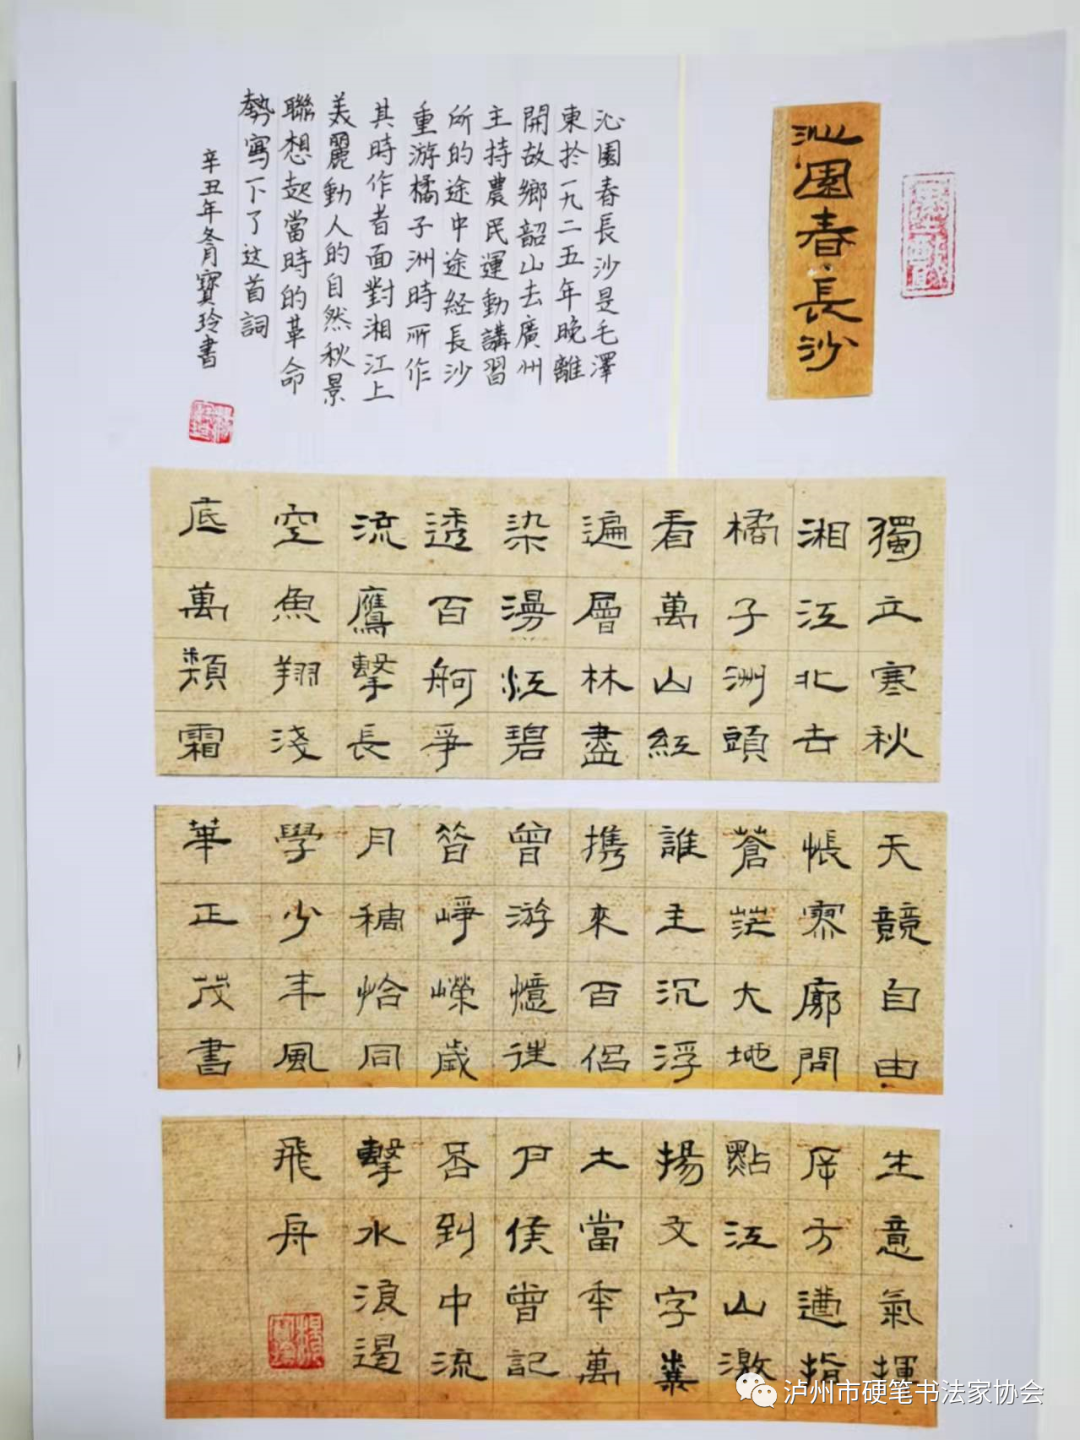 沁園春·長沙
沁園春長沙是毛澤
東於一九二五年晚離
開故鄉韶山去廣州
主持農民運動講習
所的途中途經長沙
重游橘子洲時所作
其時作者面對湘江上
美麗動人的自然秋景
聯想起當時的革命
勢寫下了这首詞
辛丑年冬月寶玲書
獨立寒秋
湘江北去
橘子洲頭
看萬山紅
遍層林盡
染漫江碧
透百舸爭
流鷹擊長
空魚翔淺
底萬類霜
天競自由
悵寥廓問
蒼茫大地
誰主沉浮
携來百侣
曾游憶往
昔崢嶸歲
月稠恰同
學少年風
華正茂書
生意氣揮
斥方遒指
點江山激
揚文字糞
土當年萬
户侯曾記
否到中流
擊水浪遏
飛舟
泸州市硬笔书法家协会